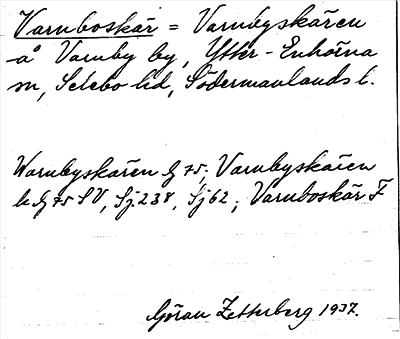 Varnboskär = Varnbyskären
å Varnby by, Ytter-Enhörna
sn, Selebo hd, Södermanlands l.
Warnbyskären G 75; Varnbyskären
k G 75 SV, Sj 238, Sj 62; Varnboskär F
Göran Zetterberg 1937.